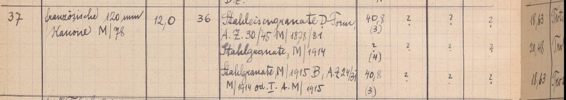 37 französische 120 mm 12,0 36 Stahleisengranate D-Form 40,8 ? ? ? 18,63
Kanone M/78 A.Z. 30/45 M/1878/81 (3)
Stahlgranate, M/1914 ? ? ? ? 20,48
(4)
Stahlgranate M/1915 B, A.Z 24/31 40,8 ? ? ? 18,63
M/1914 od. I. A. M/1915 (3)